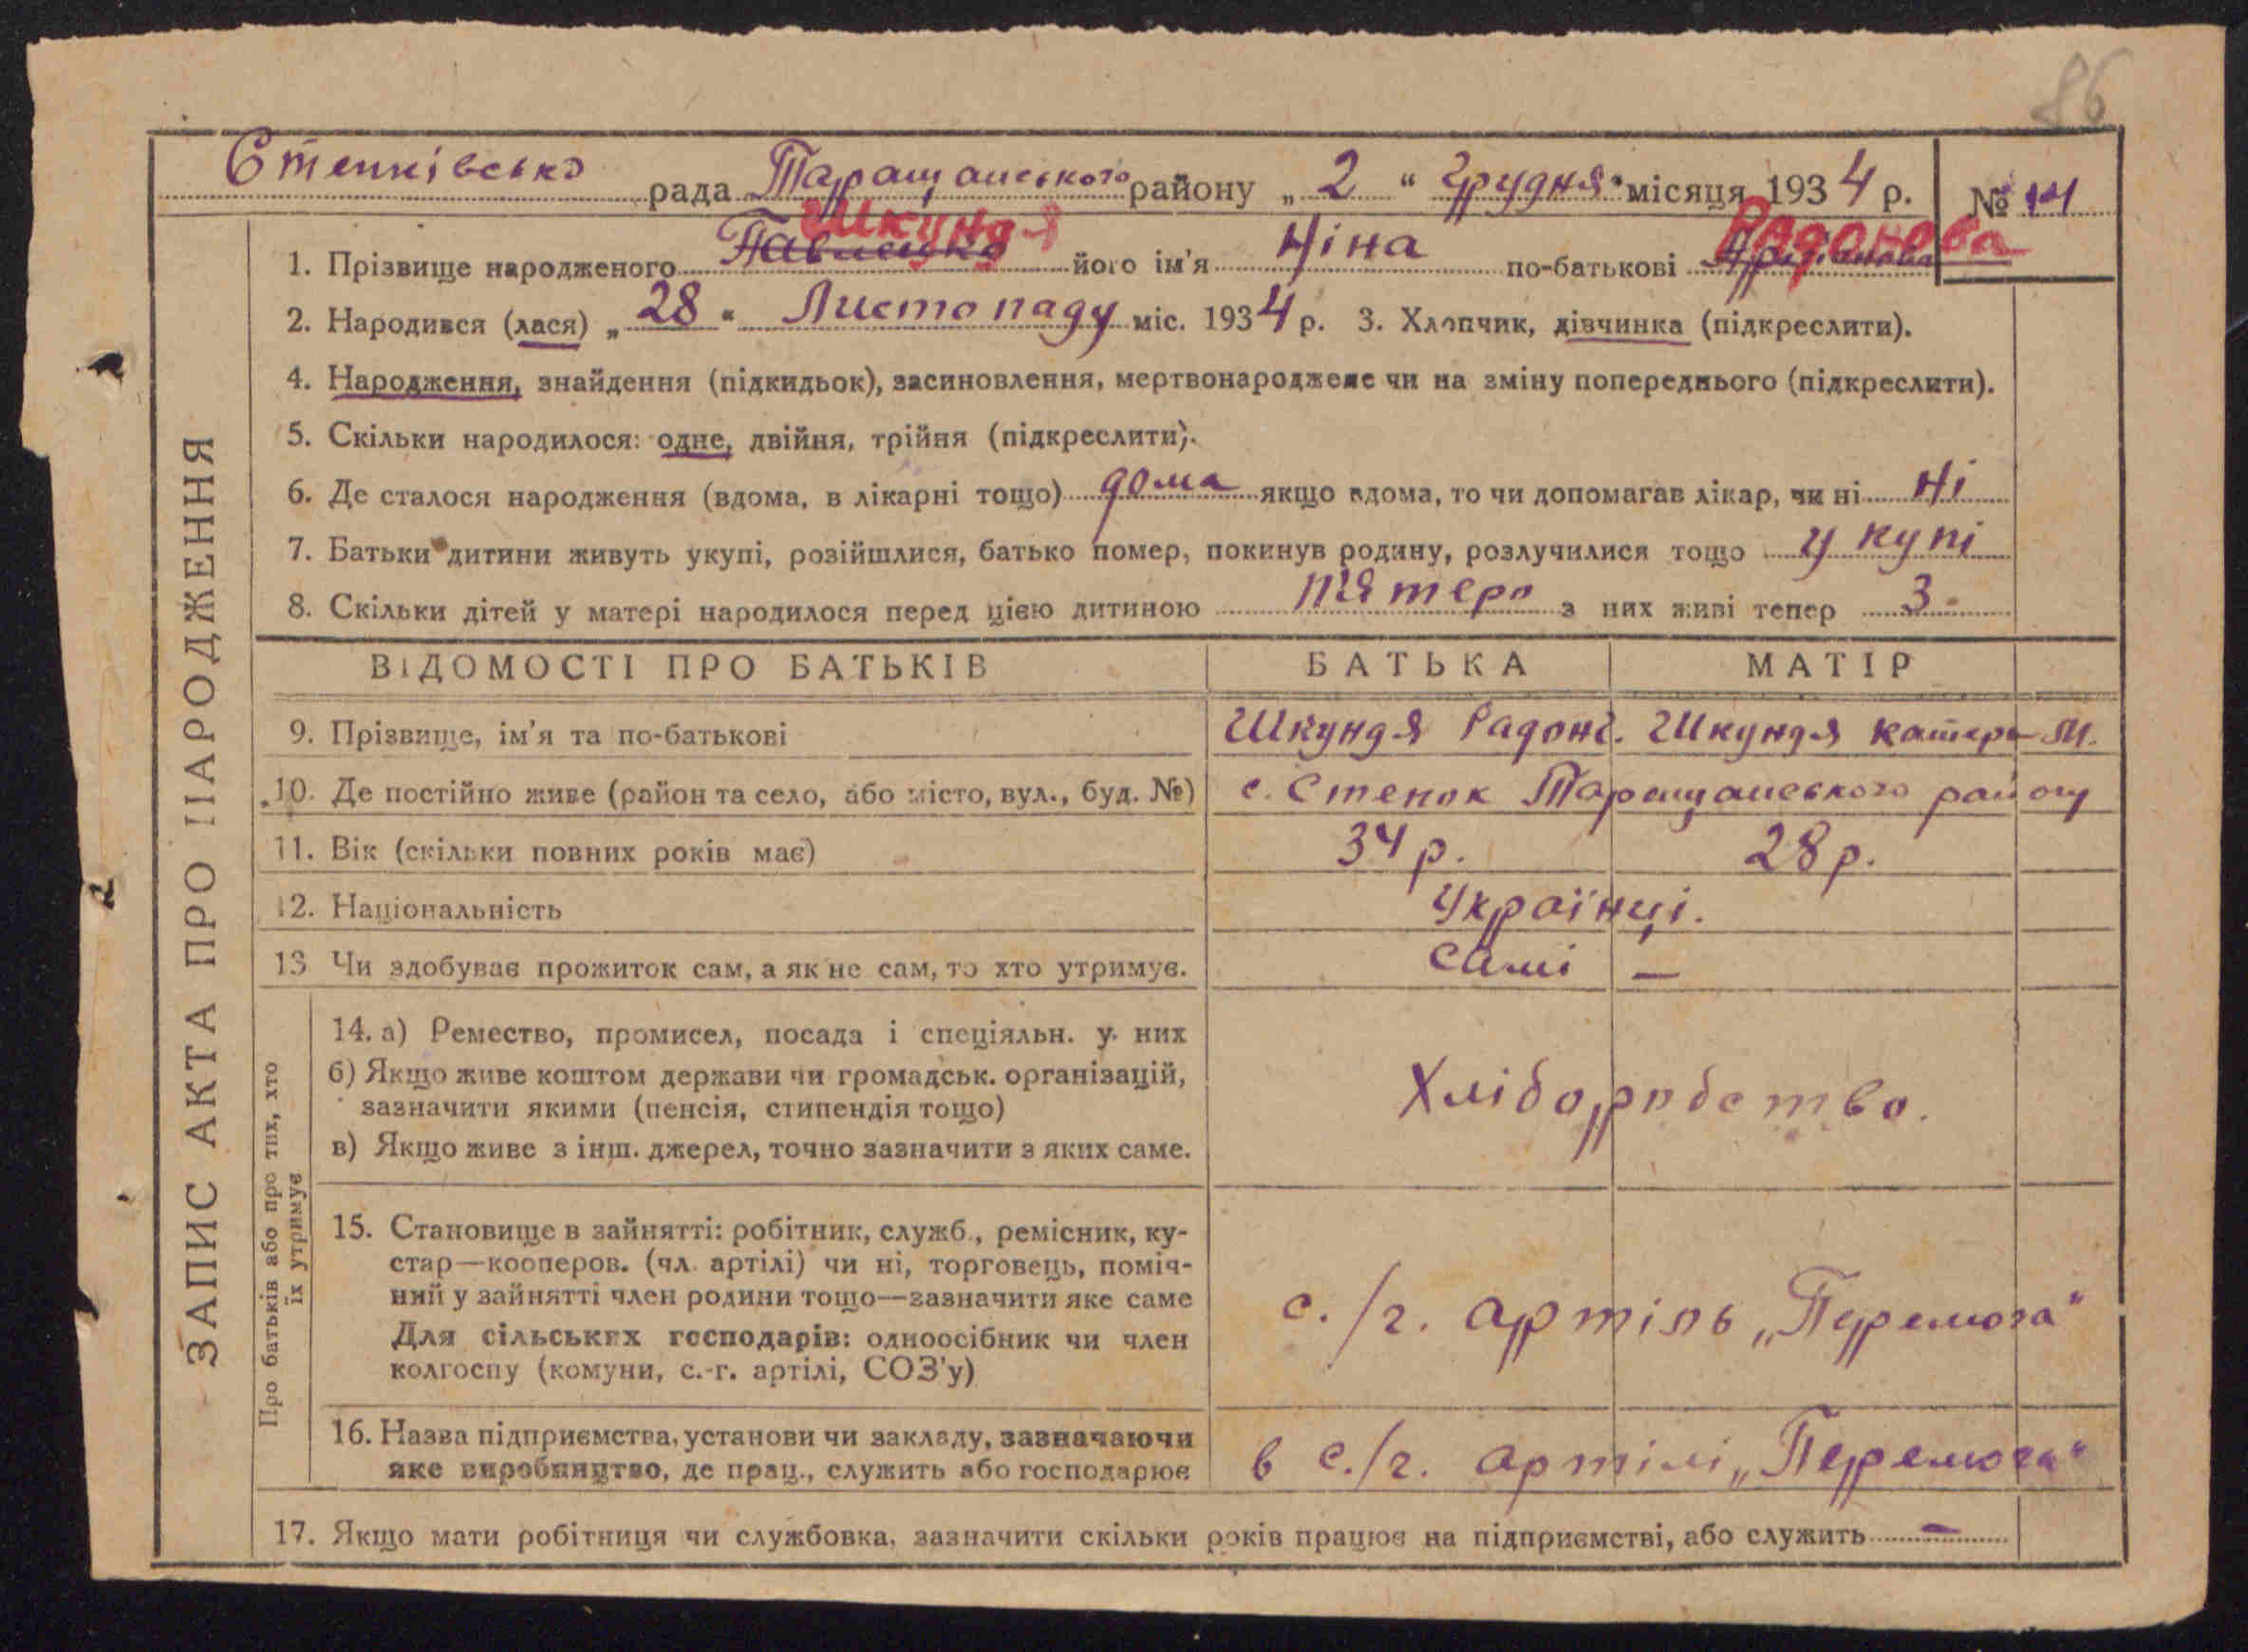 86
Стенківська рада Таращанського району „ 2 “ Грудня місяця 1934 р. № 14
Шкундя Радонова
1. Прізвище народженого Павленко його ім'я Ніна по-батькові
2. Народився (лася) „ 28 “ Листопаду міс. 1934 р. 3. Хлопчик, дівчинка (підкреслити).
4. Народження, знайдення (підкидьок), засиновлення, мертвонароджене чи на зміну попереднього (підкреслити).
5. Скільки народилося: одне, двійня, трійня (підкреслити).
6. Де сталося народження (вдома, в лікарні тощо) дома якщо вдома, то чи допомагав лікар, чи ні Ні
7. Батьки дитини живуть укупі, розійшлися, батько помер, покинув родину, розлучилися тощо у купі
8. Скільки дітей у матері народилося перед цією дитиною пятеро з них живі тепер 3
ЗАПИС АКТА ПРО НАРОДЖЕННЯ
ВІДОМОСТІ ПРО БАТЬКІВ БАТЬКА МАТІР
9. Прізвище, ім'я та по-батькові Шкундя Радон Г. Шкундя Катери М.
10. Де постійно живе (район та село, або місто, вул., буд. №) с. Стенок Таращанського району
11. Вік (скільки повних років має) 34 р. 28 р.
12. Національність Українці.
13 Чи здобуває прожиток сам, а як не сам, то хто утримує. Самі —
Про батьків або про тих, хто
їх утримує
14. а) Ремество, промисел, посада і спеціяльн. у них
б) Якщо живе коштом держави чи громадськ. організацій,
зазначити якими (пенсія, стипендія тощо)
Хлібороб ство.
в) Якщо живе з інш. джерел, точно зазначити з яких саме.
15. Становище в зайнятті: робітник, служб., ремісник, ку-
стар—кооперов. (чл. артілі) чи ні, торговець, поміч-
ний у зайнятті член родини тощо—зазначити яке саме
Для сільських господарів: одноосібник чи член
колгоспу (комуни, с.-г. артілі, СОЗ'у)
с./г. артіль „Перемога“
16. Назва підприємства, установи чи закладу, зазначаючи
яке виробництво, де прац., служить або господарює
в с./г. артілі „Перемога“
17. Якщо мати робітниця чи службовка, зазначити скільки років працює на підприємстві, або служить —